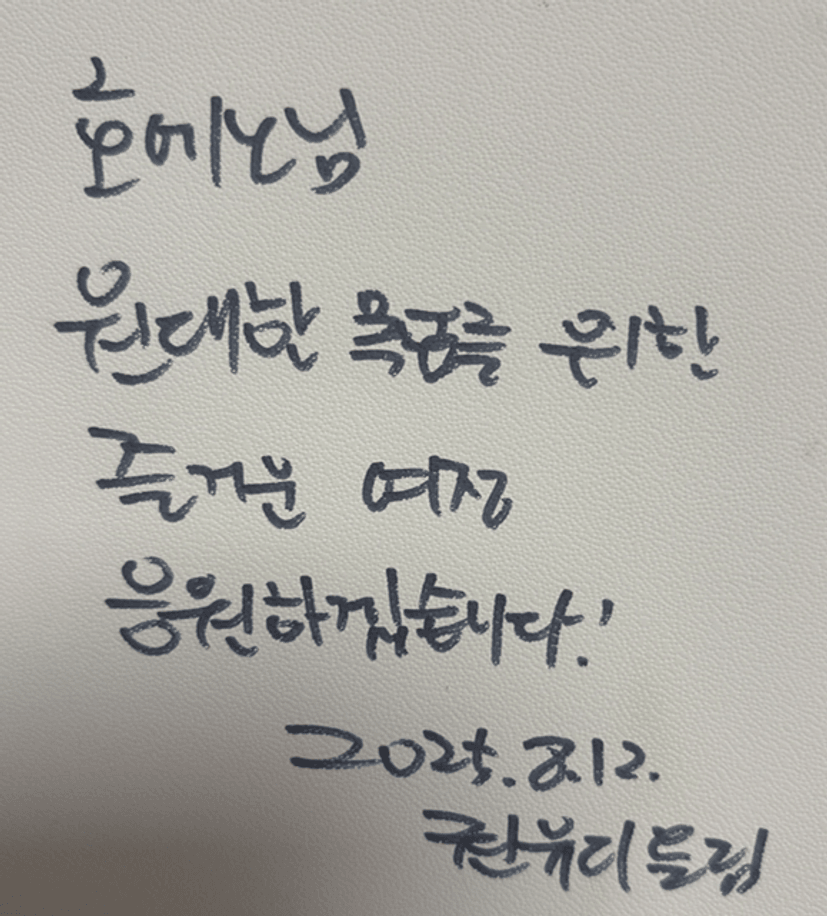 호에노님
원대한 목표를 위한
즐거운 여정
응원하겠습니다!
2025.8.12.
권유디 드림